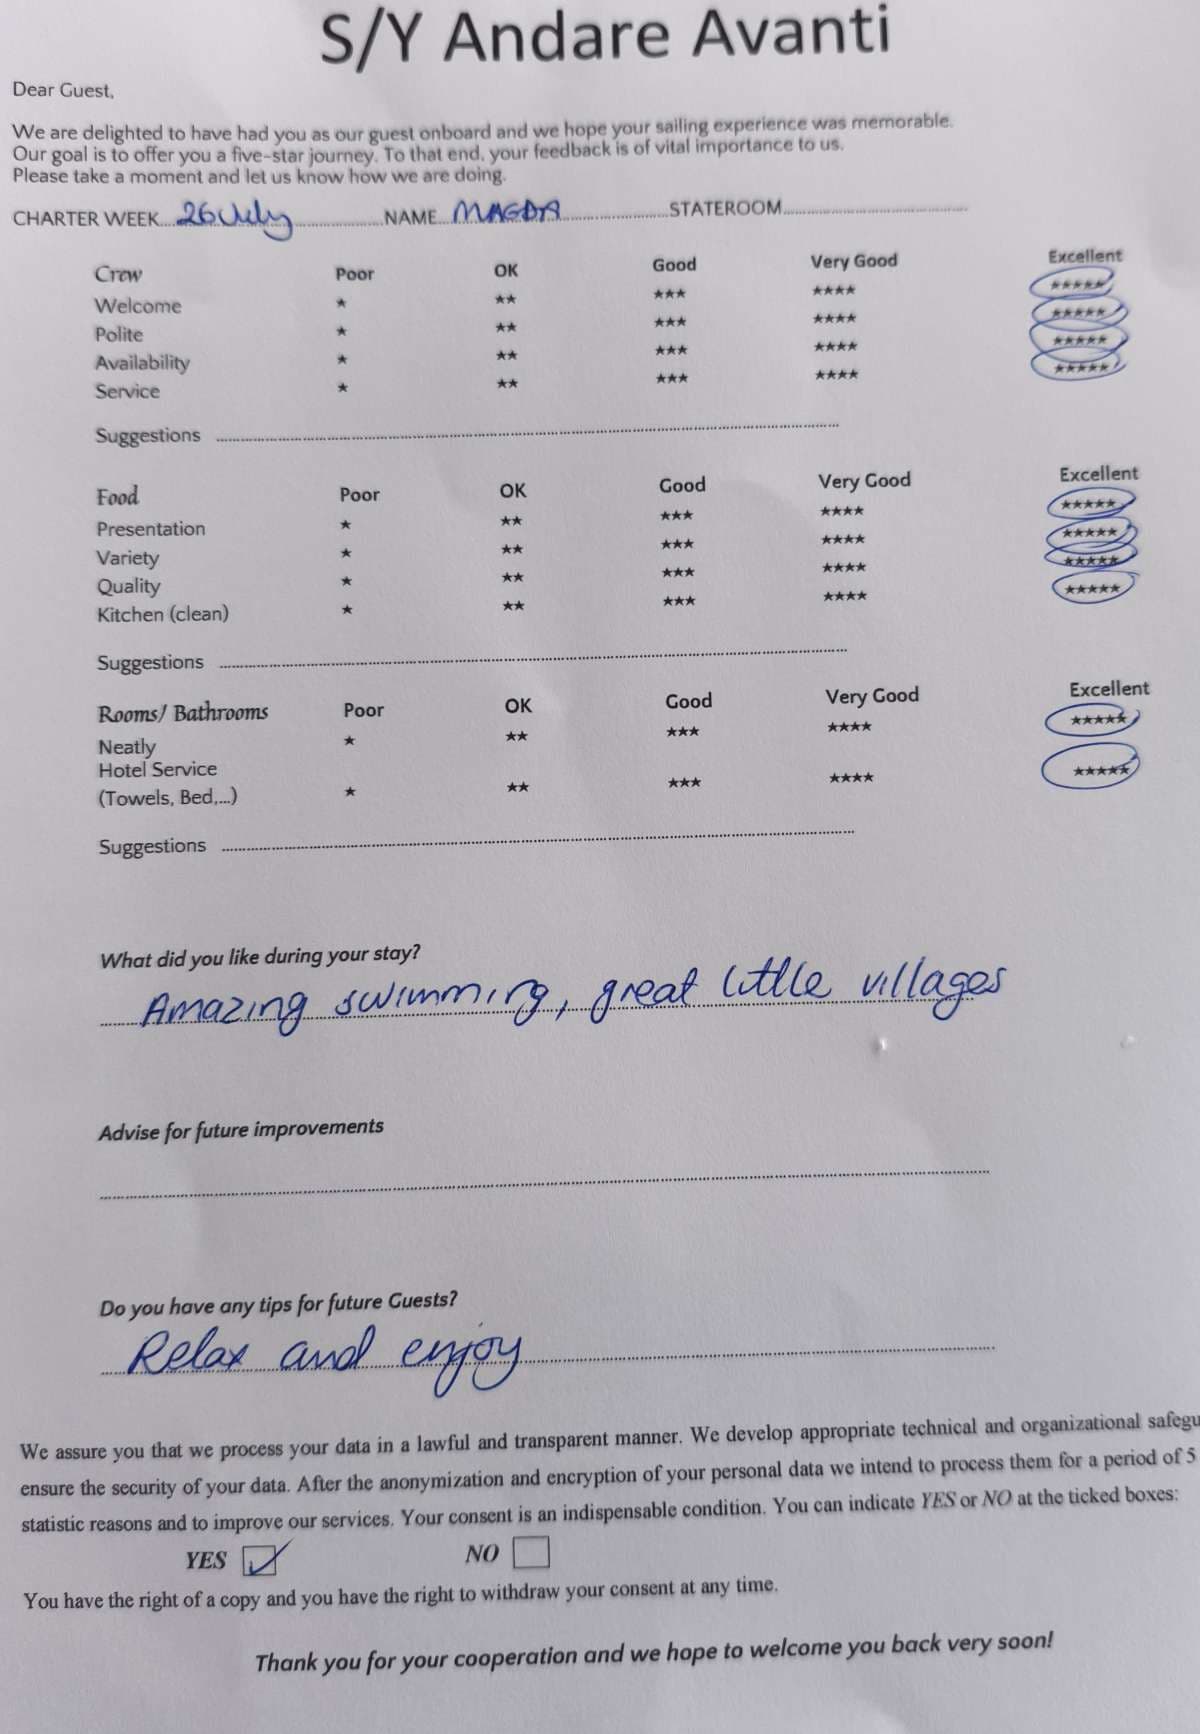 S/Y Andare Avanti
Dear Guest,
We are delighted to have had you as our guest onboard and we hope your sailing experience was memorable.
Our goal is to offer you a five-star journey. To that end, your feedback is of vital importance to us.
Please take a moment and let us know how we are doing.
CHARTER WEEK 26 July NAME MAGDA STATEROOM
Crew Poor OK Good Very Good Excellent
Welcome ★ ★★ ★★★ ★★★★ ★★★★★
Polite ★ ★★ ★★★ ★★★★ ★★★★★
Availability ★ ★★ ★★★ ★★★★ ★★★★★
Service ★ ★★ ★★★ ★★★★ ★★★★★
Suggestions
Food Poor OK Good Very Good Excellent
Presentation ★ ★★ ★★★ ★★★★ ★★★★★
Variety ★ ★★ ★★★ ★★★★ ★★★★★
Quality ★ ★★ ★★★ ★★★★ ★★★★★
Kitchen (clean) ★ ★★ ★★★ ★★★★ ★★★★★
Suggestions
Rooms/ Bathrooms Poor OK Good Very Good Excellent
Neatly ★ ★★ ★★★ ★★★★ ★★★★★
Hotel Service
(Towels, Bed,...) ★ ★★ ★★★ ★★★★ ★★★★★
Suggestions
What did you like during your stay?
Amazing swimming, great little villages
Advise for future improvements
Do you have any tips for future Guests?
Relax and enjoy
We assure you that we process your data in a lawful and transparent manner. We develop appropriate technical and organizational safegu
ensure the security of your data. After the anonymization and encryption of your personal data we intend to process them for a period of 5
statistic reasons and to improve our services. Your consent is an indispensable condition. You can indicate YES or NO at the ticked boxes:
YES NO
You have the right of a copy and you have the right to withdraw your consent at any time.
Thank you for your cooperation and we hope to welcome you back very soon!